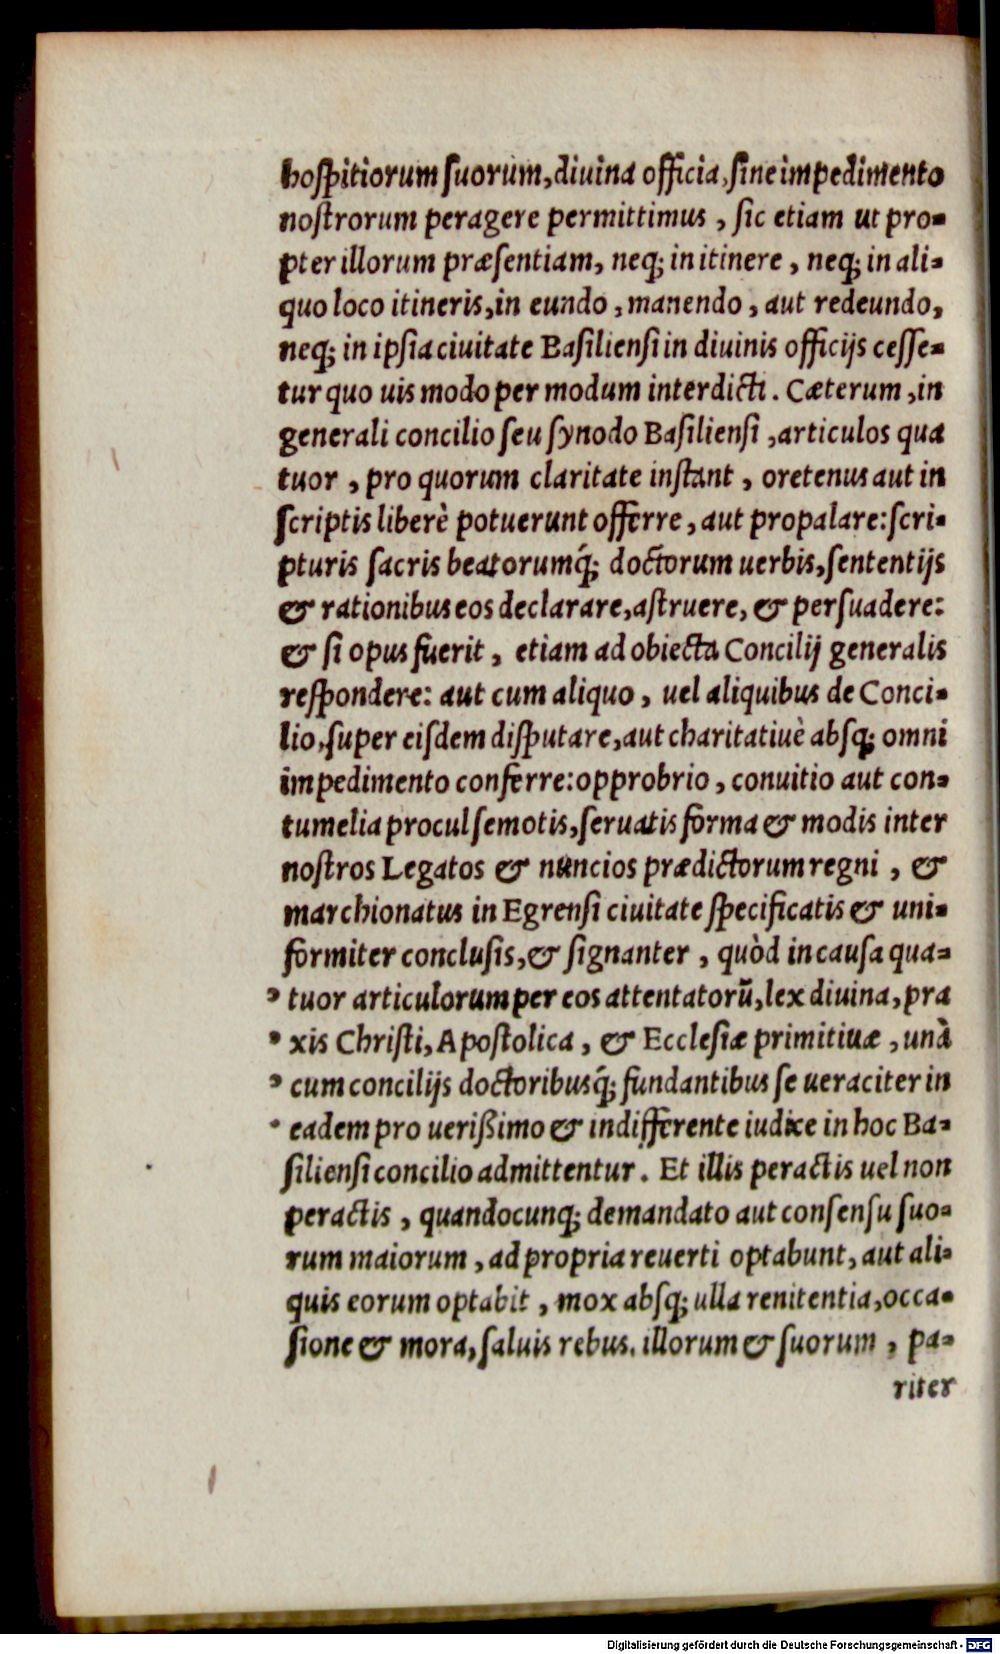 hoſpitiorum ſuorum, diuina officia, ſine impedimento
noſtrorum peragere permittimus, ſic etiam ut pro-
pter illorum præſentiam, neq; in itinere, neq; in ali-
quo loco itineris, in eundo, manendo, aut redeundo,
neq; in ipſia ciuitate Baſilienſi in diuinis officijs ceſſe-
tur quo uis modo per modum interdicti. Cæterum, in
generali concilio ſeu ſynodo Baſilienſi, articulos qua
tuor, pro quorum claritate inſtant, oretenus aut in
ſcriptis liberè potuerunt offerre, aut propalare: ſcri-
pturis ſacris beatorumq́; doctorum uerbis, ſententijs
& rationibus eos declarare, aſtruere, & perſuadere:
& ſi opus fuerit, etiam ad obiecta Concilij generalis
reſpondere: aut cum aliquo, uel aliquibus de Conci-
lio, ſuper eiſdem diſputare, aut charitatiuè abſq; omni
impedimento conferre: opprobrio, conuitio aut con-
tumelia procul ſemotis, ſeruatis forma & modis inter
noſtros Legatos & nuncios prædictorum regni, &
marchionatus in Egrenſi ciuitate ſpecificatis & uni-
formiter concluſis, & ſignanter, quòd in cauſa qua-
tuor articulorum per eos attentatorū, lex diuina, pra
xis Chriſti, Apoſtolica, & Eccleſiæ primitiuæ, unà
cum concilijs doctoribusq́; fundantibus ſe ueraciter in
eadem pro ueriſſimo & indifferente iudice in hoc Ba-
ſilienſi concilio admittentur. Et illis peractis uel non
peractis, quandocunq; demandato aut conſenſu ſuo-
rum maiorum, ad propria reuerti optabunt, aut ali-
quis eorum optabit, mox abſq; ulla renitentia, occa-
ſione & mora, ſaluis rebus. illorum & ſuorum, pa-
riter
Digitalisierung gefördert durch die Deutsche Forschungsgemeinschaft - DFG